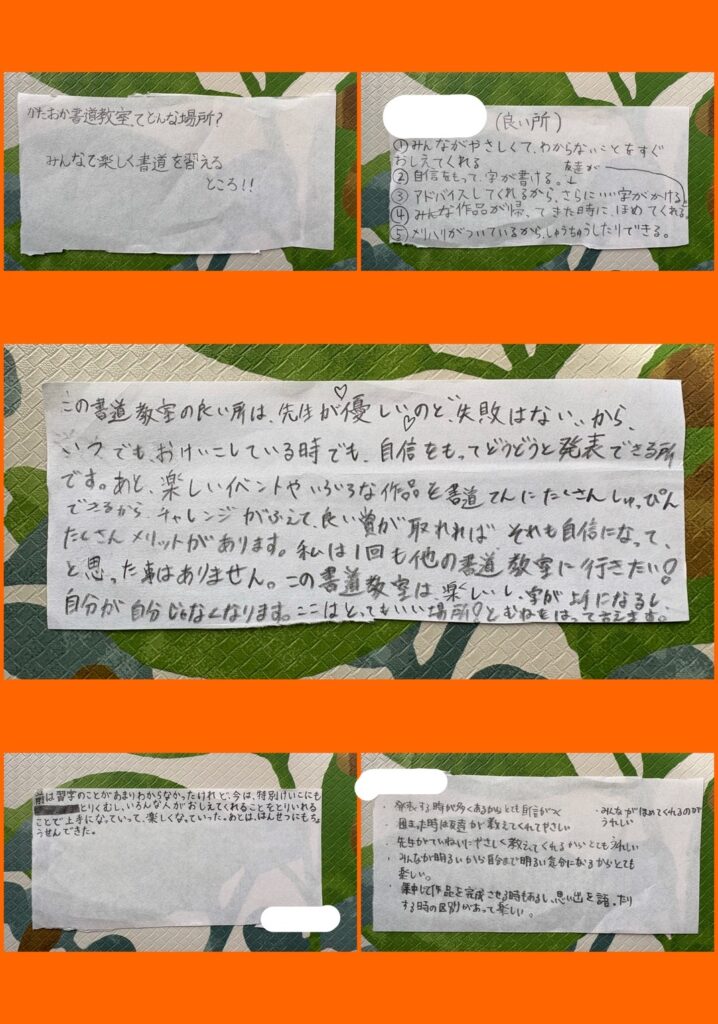 かたおか書道教室ってどんな場所?
みんなで楽しく書道を習える
ところ!!
(良い所)
①みんながやさしくて、わからないことをすぐ
おしえてくれる
②自信をもって、字が書ける。
友達が
③アドバイスしてくれるから、さらにいい字がかけると
④みんな作品が帰ってきた時に、ほめてくれる。
⑤メリハリがついているから、しゅうちゅうしたりできる。
この書道教室の良い所は、先生が優しいのと"失敗はない"から、
いつでも、おけいこしている時でも、自信をもってどうどうと発表できる所
です。あと、楽しいイベントやいろいろな作品を書道てんにたくさんしゅっぴん
できるから、チャレンジがふえて、良い賞が取れればそれも自信になって、
たくさんメリットがあります。私は1回も他の書道教室に行きたい!
と思った事はありません。この書道教室は楽しいし、字が上手になるし、
自分が自分じゃなくなります。ここはとってもいい場所!とむねをはって言えます。
前は習字のことがあまりわからなかったけれど、今は、特別けいこにも
とりくむし、いろんな人がおしえてくれることをとりいれる
ことで上手になっていって、楽しくなっていった。あとは、はんせつにもちょ
うせんできた。
・発表する時が多くあるからとても自信がつく
・みんながほめてくれるのが
うれしい
・困った時は友達が教えてくれてやさしい
・先生がていねいにやさしく教えてくれるからとてもうれしい
・みんなが明るいから自分まで明るい気分になるからとても
楽しい。
・集中して作品を完成させる時もあるし、思い出を語ったり
する時の区別があって楽しい。